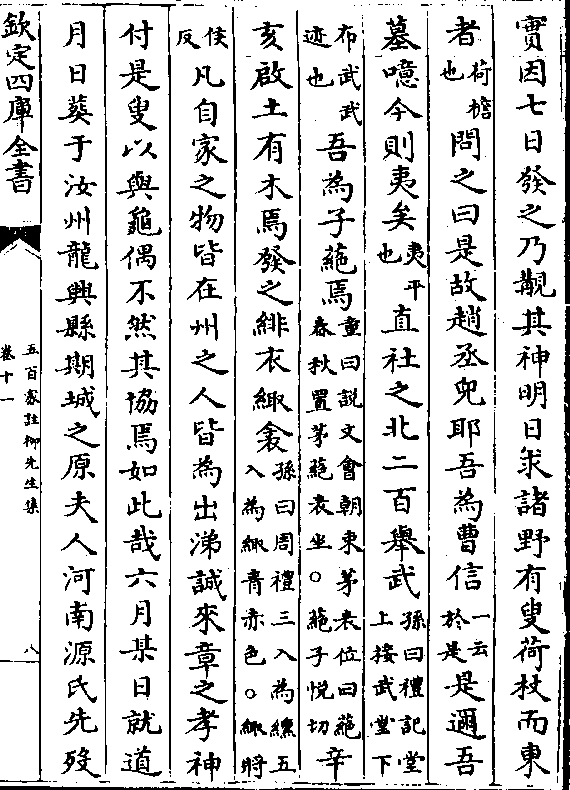 實因七日發之乃覯其神明日求諸野有叟荷杖而東
者荷檐也問之曰是故趙丞兒耶吾為曹信一云於是是邇吾
墓噫今則夷矣夷平也直社之北二百舉武孫曰禮記堂上接武堂下
布武武迹也吾為子蕝焉童曰說文會朝束茅表位曰蕝春秋置茅蕝表坐。蕝子悅切辛
亥啟土有木焉發之緋衣緅衾孫曰周禮三入為纁五入為緅青赤色。緅將
侯反凡自家之物皆在州之人皆為出涕誠來章之孝神
付是叟以與龜偶不然其協焉如此哉六月某日就道
月日葬于汝州龍興縣期城之原夫人河南源氏先歿
欽定四庫全書
五百家註柳先生集
卷十一
八